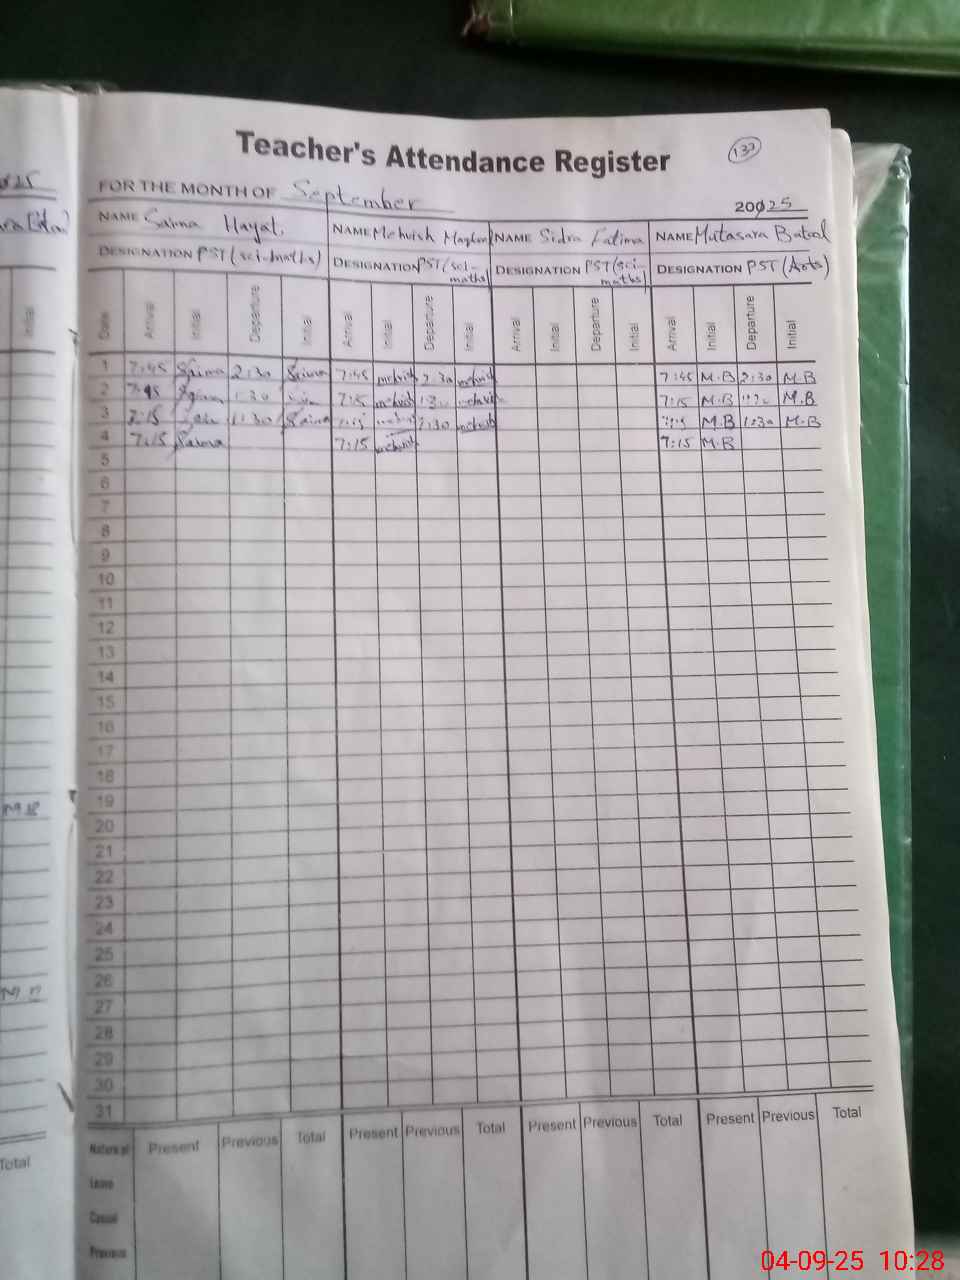 Teacher's Attendance Register
132
FOR THE MONTH OF September
2025
NAME Saima Hayat. NAME Mehwish NAME Sidra Fatima NAME Mutasara Batool
DESIGNATION PST (sci-maths) DESIGNATION PST (sci-maths) DESIGNATION PST (sci-maths) DESIGNATION PST (Arts)
Date Arrival Initial Departure Initial Arrival Initial Departure Initial Arrival Initial Departure Initial Arrival Initial Departure Initial
1 7:45 Saima 2:30 Saima 7:45 mehwish 2:30 mehwish 7:45 M.B 2:30 M.B
2 1:30 7:15 mehwish mehwish 7:15 M.B M.B
3 7:15 1:30 Saima 7:15 mehwish 1:30 mehwish 7:15 M.B 1:30 M.B
4 7:15 Saima 7:15 mehwish 7:15 M.B
5
6
7
8
9
10
11
12
13
14
15
16
17
18
19
20
21
22
23
24
25
26
27
28
29
30
31
Nature of Present Previous Total Present Previous Total Present Previous Total Present Previous Total
Leave
Casual
Previous
Initial
M.B
Total
04-09-25 10:28